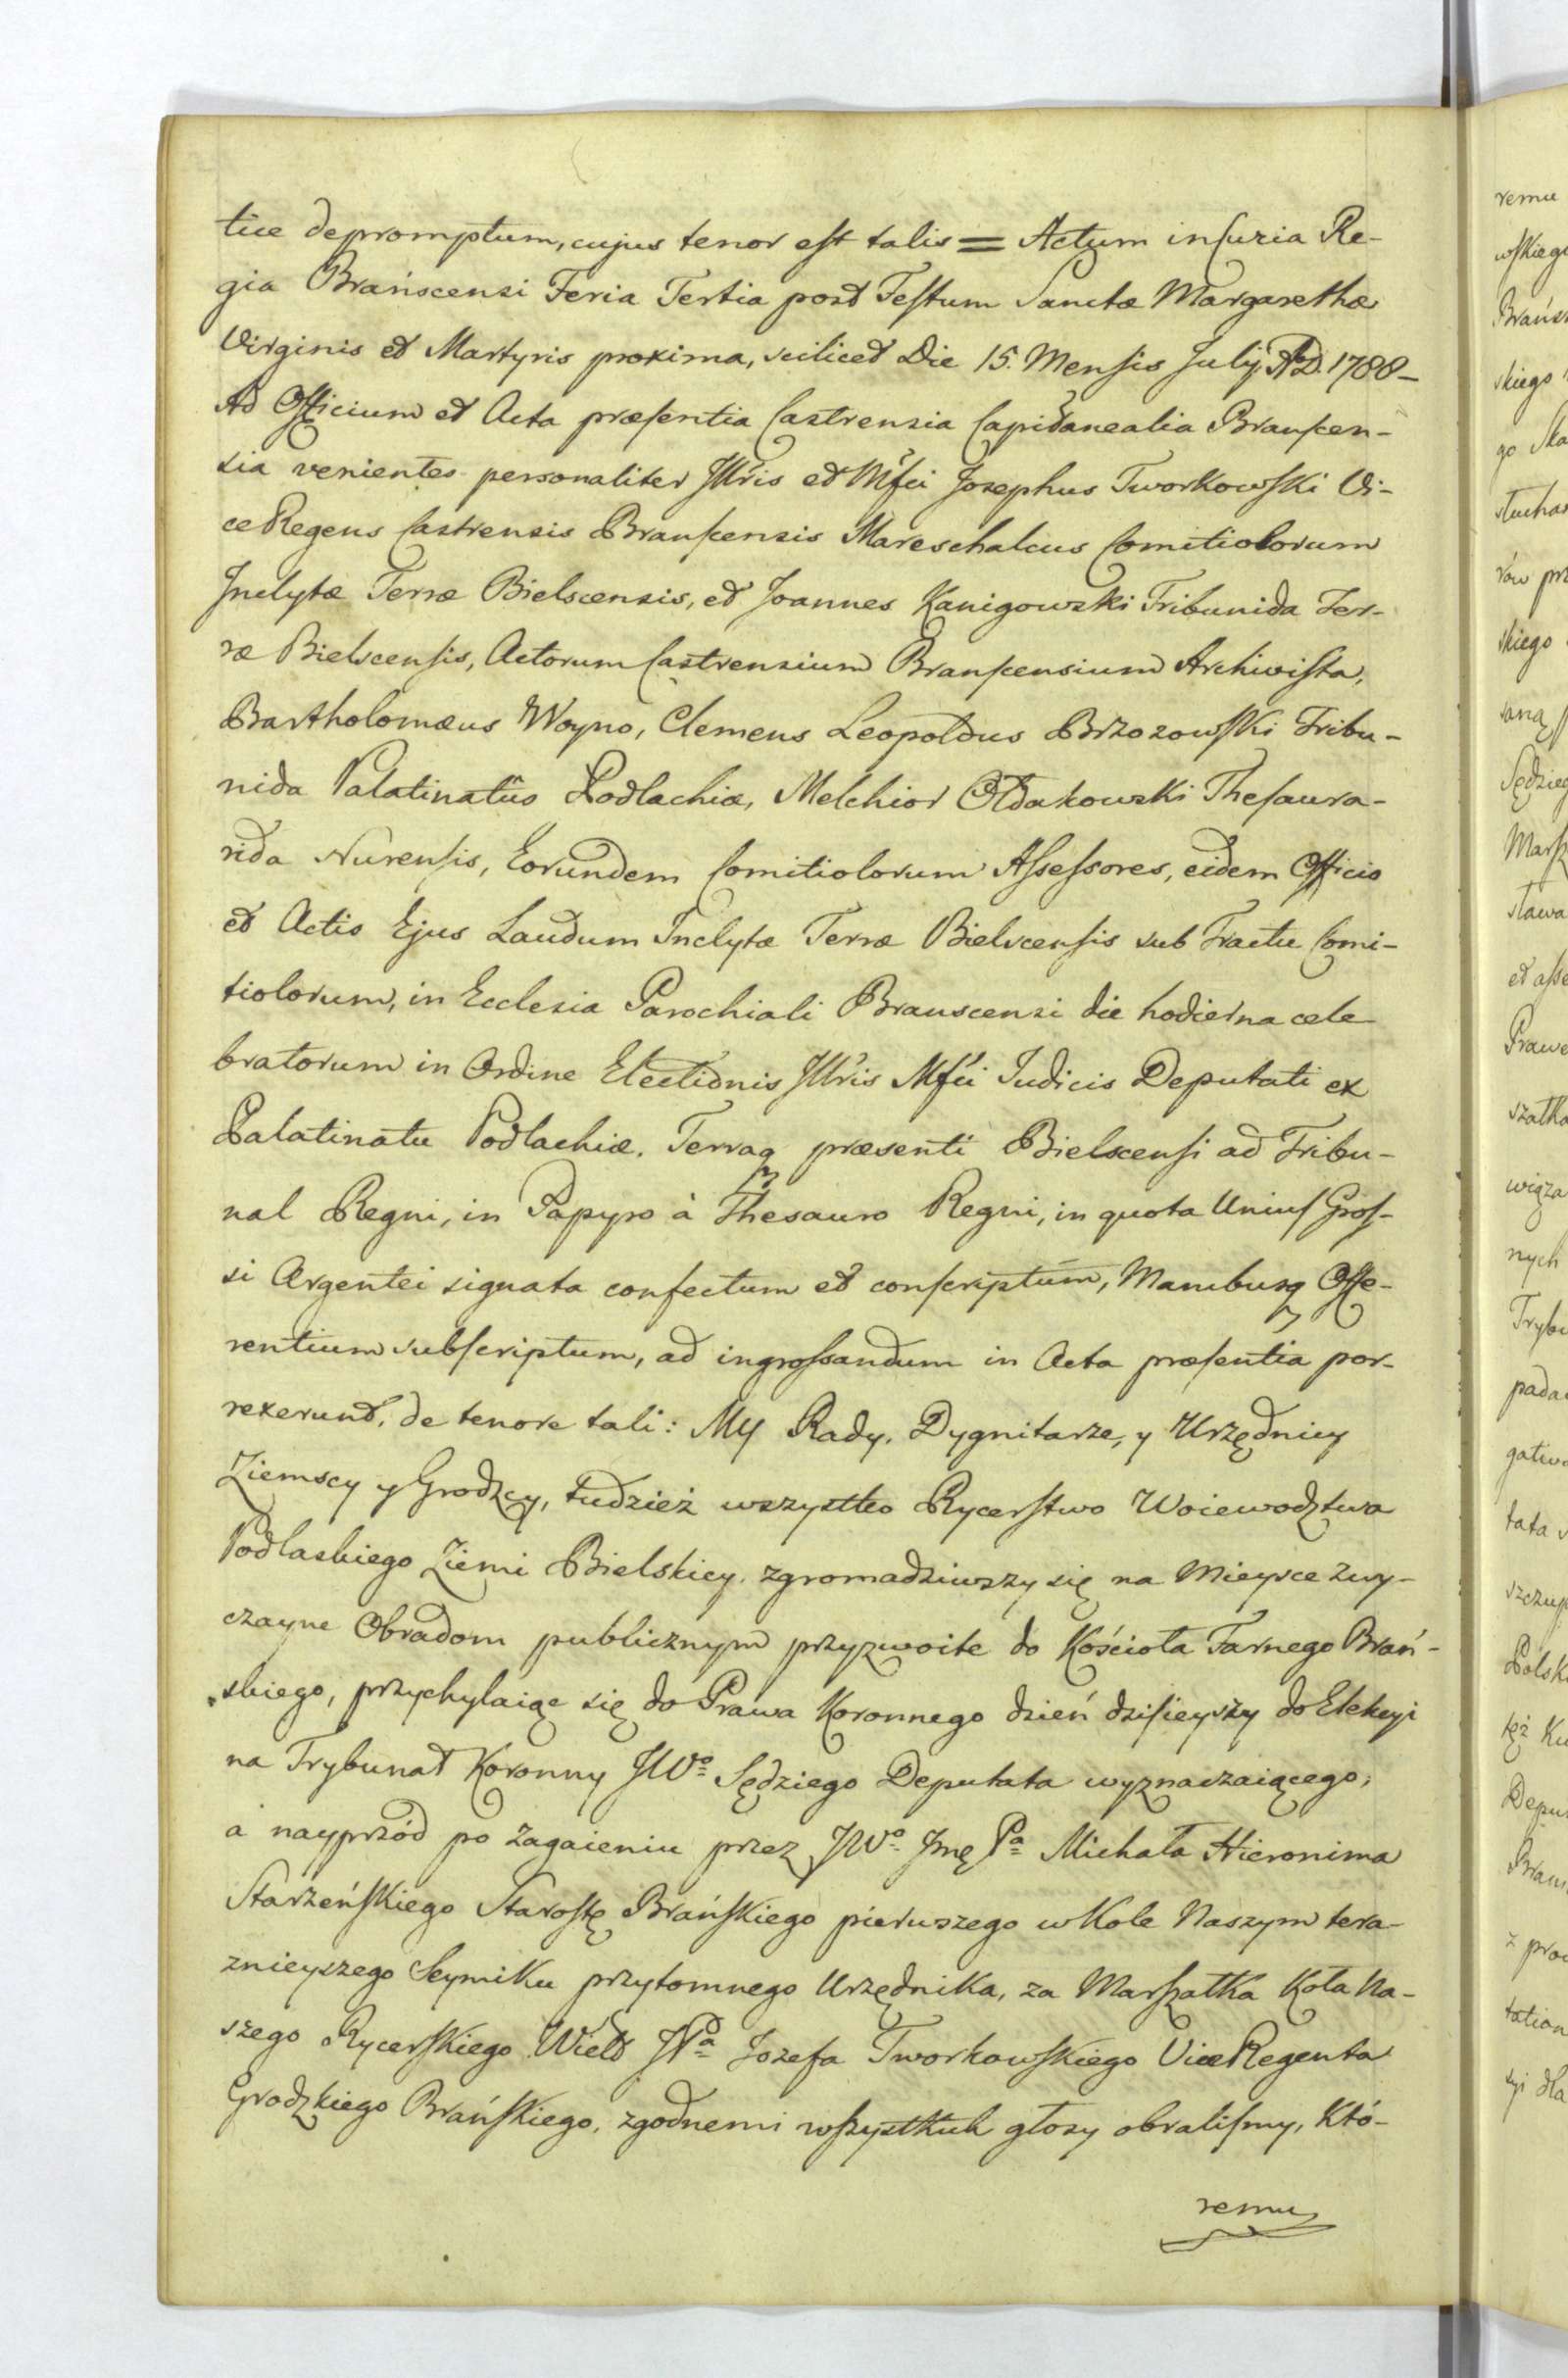 tice depromptum, cujus tenor est talis = Actum in Curia Re-
gia Brańscensi Feria Tertia post Festum Sanctæ Margarethæ
Virginis et Martyris proxima, scilicet Die 15. Mensis Julij A.D. 1788 -
Ad Officium et Acta præsentia Castrensia Capitanealia Branscen-
sia venientes personaliter Jllris et Mfci Josephus Tworkowski Vi-
ce Regens Castrensis Branscensis Mareschalcus Comitiolorum
Jnclytæ Terræ Bielscensis, et Joannes Kanigowski Tribunida Ter-
ræ Bielscensis, Actorum Castrensium Branscensium Archivista,
Bartholomæus Woyno, Clemens Leopoldus Brzozowski Tribu-
nida Palatinatûs Podlachiæ, Melchior Ołdakowski Thesaura-
rida Nurensis, Eorundem Comitiolorum Assessores, eidem Officio
et Actis Ejus Laudum Jnclytæ Terræ Bielscensis sub Tractu Comi-
tiolorum, in Ecclesia Parochiali Branscensi die hodierna cele
bratorum in Ordine Electionis Jllris Mfci Judicis Deputati ex
Palatinatu Podlachiæ, Terraq præsenti Bielscensi ad Tribu-
nal Regni, in Papyro à Thesauro Regni, in quota Unius Gros-
si Argentei signata confectum et conscriptum, Manibusq Offe-
rentium subscriptum, ad ingrossandum in Acta præsentia por-
rexerunt, de tenore tali: My Rady, Dygnitarze, y Urzędnicy
Ziemscy y Grodzcy, tudzież wszystko Rycerstwo Woiewodztwa
Podlaskiego Ziemi Bielskiey, zgromadziwszy się na Mieysce zwy-
czayne Obradom publicznym przyzwoite do Kościoła Farnego Brań-
skiego, przychylaiąc się do Prawa Koronnego dzień dzisieyszy do Elekcyi
na Trybunał Koronny JWo Sędziego Deputata wyznaczaiącego,
a nayprzód po Zagaieniu przez JWo Jmę Pa Michała Hieronima
Starzeńskiego Starostę Brańskiego pierwszego w Kole Naszym tera-
znieyszego Seymiku przytomnego Urzędnika, za Marszałka Koła Na-
szego Rycerskiego Wielo JPa Jozefa Tworkowskiego Vice Regenta
Grodzkiego Brańskiego, zgodnemi wszystkich głosy obralismy, Któ-
remu